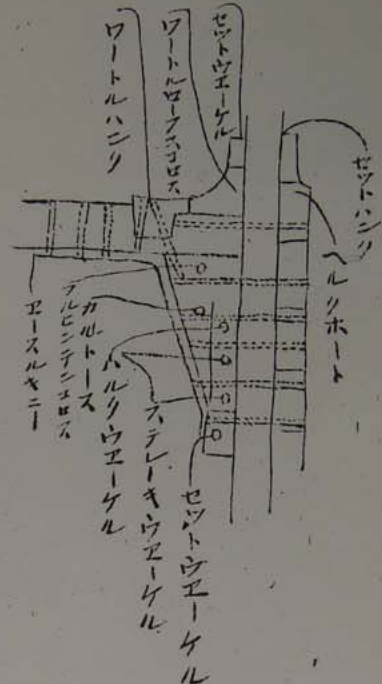 セットハンリ
ヘルリホート
セットウエーケル
ワートルロープスコロス
ワートルハンリ
ヱースルキニー
アルヒンテンコロス
カルトース
ハルクウヱーケル
ステレーキウヱーケル
セツトウヱーケル